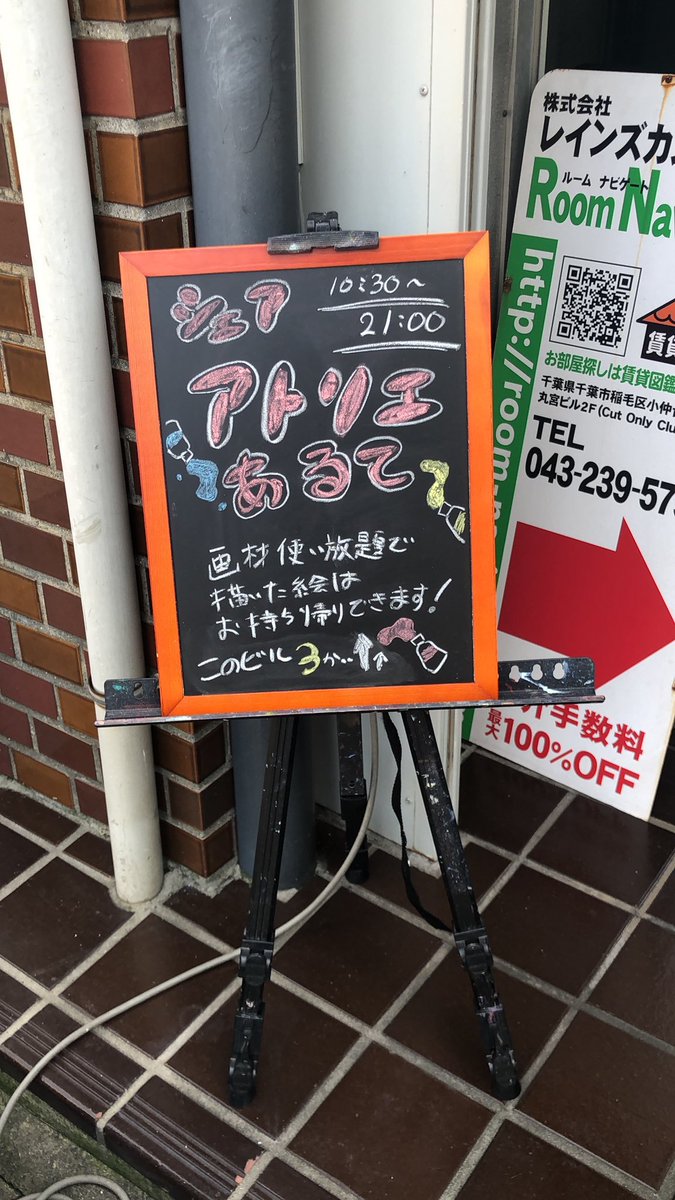 シェア
10:30〜
21:00
アトリエ
あるて
画材使い放題で
描いた絵は
お持ち帰りできます!
このビル3か‥↑↑
株式会社
レインズカ
ルーム ナビゲート
Room Nav
http://room-n
お部屋探しは賃貸図鑑
賃貸
千葉県千葉市稲毛区小仲台
丸宮ビル2F(Cut Only Clu
TEL
043-239-573
手数料
最大100%OFF